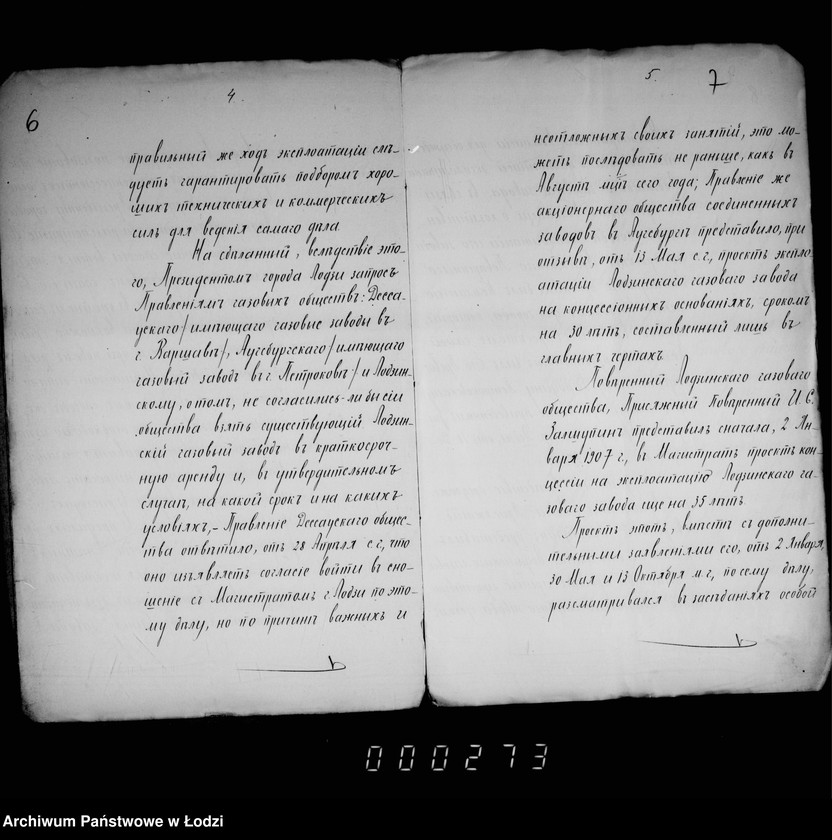 4.
6
правильный же ходъ эксплоатаціи слѣ-
дуетъ гарантировать подборомъ хоро-
шихъ техническихъ и коммерческихъ
силъ для веденія самаго дѣла
На сдѣланный, вслѣдствіе это-
го, Президентомъ города Лодзи запросъ
Правленіямъ газовыхъ обществъ: Десса-
ускаго /имѣющаго газовые заводы въ
г. Варшавѣ/, Аугсбургскаго /имѣющаго
газовый заводъ въ г. Петроковѣ/ и Лодзин-
скому, о томъ, не согласились-ли бы сіи
общества взять существующій Лодзин-
скій газовый заводъ въ краткосроч-
ную аренду и, въ утвердительномъ
случаѣ, на какой срокъ и на какихъ
условіяхъ,- Правленіе Дессаускаго общес-
тва отвѣтило, отъ 28 Апрѣля с.г., что
оно изъявляетъ согласіе войти въ сно-
шеніе съ Магистратомъ г. Лодзи по это-
му дѣлу, но по причинѣ важныхъ и
5.
7
неотложныхъ своихъ занятій, это мо-
жетъ послѣдовать не раньше, какъ въ
Августѣ мцѣ сего года; Правленіе же
акціонернаго общества соединенныхъ
заводовъ въ Аугсбургѣ представило, при
отзывѣ, отъ 13 Мая с.г., проектъ эксплo-
атаціи Лодзинскаго газоваго завода
на концессіонныхъ основаніяхъ, срокомъ
на 30 лѣтъ, составленный лишь въ
главныхъ чертахъ
Повѣренный Лодзинскаго газоваго
общества, Присяжный Повѣренный И. С.
представилъ сначала, 2 Ян-
варя 1907 г., въ Магистратъ проектъ кон-
цессіи на эксплоатацію Лодзинскаго га-
зоваго завода еще на 35 лѣтъ
Проектъ этотъ, вмѣстѣ съ дополни-
тельными заявленіями его, отъ 2 Января,
30 Мая и 13 Октября м.г., по сему дѣлу,
разсматривался въ засѣданіяхъ особой
000273
Archiwum Państwowe w Łodzi